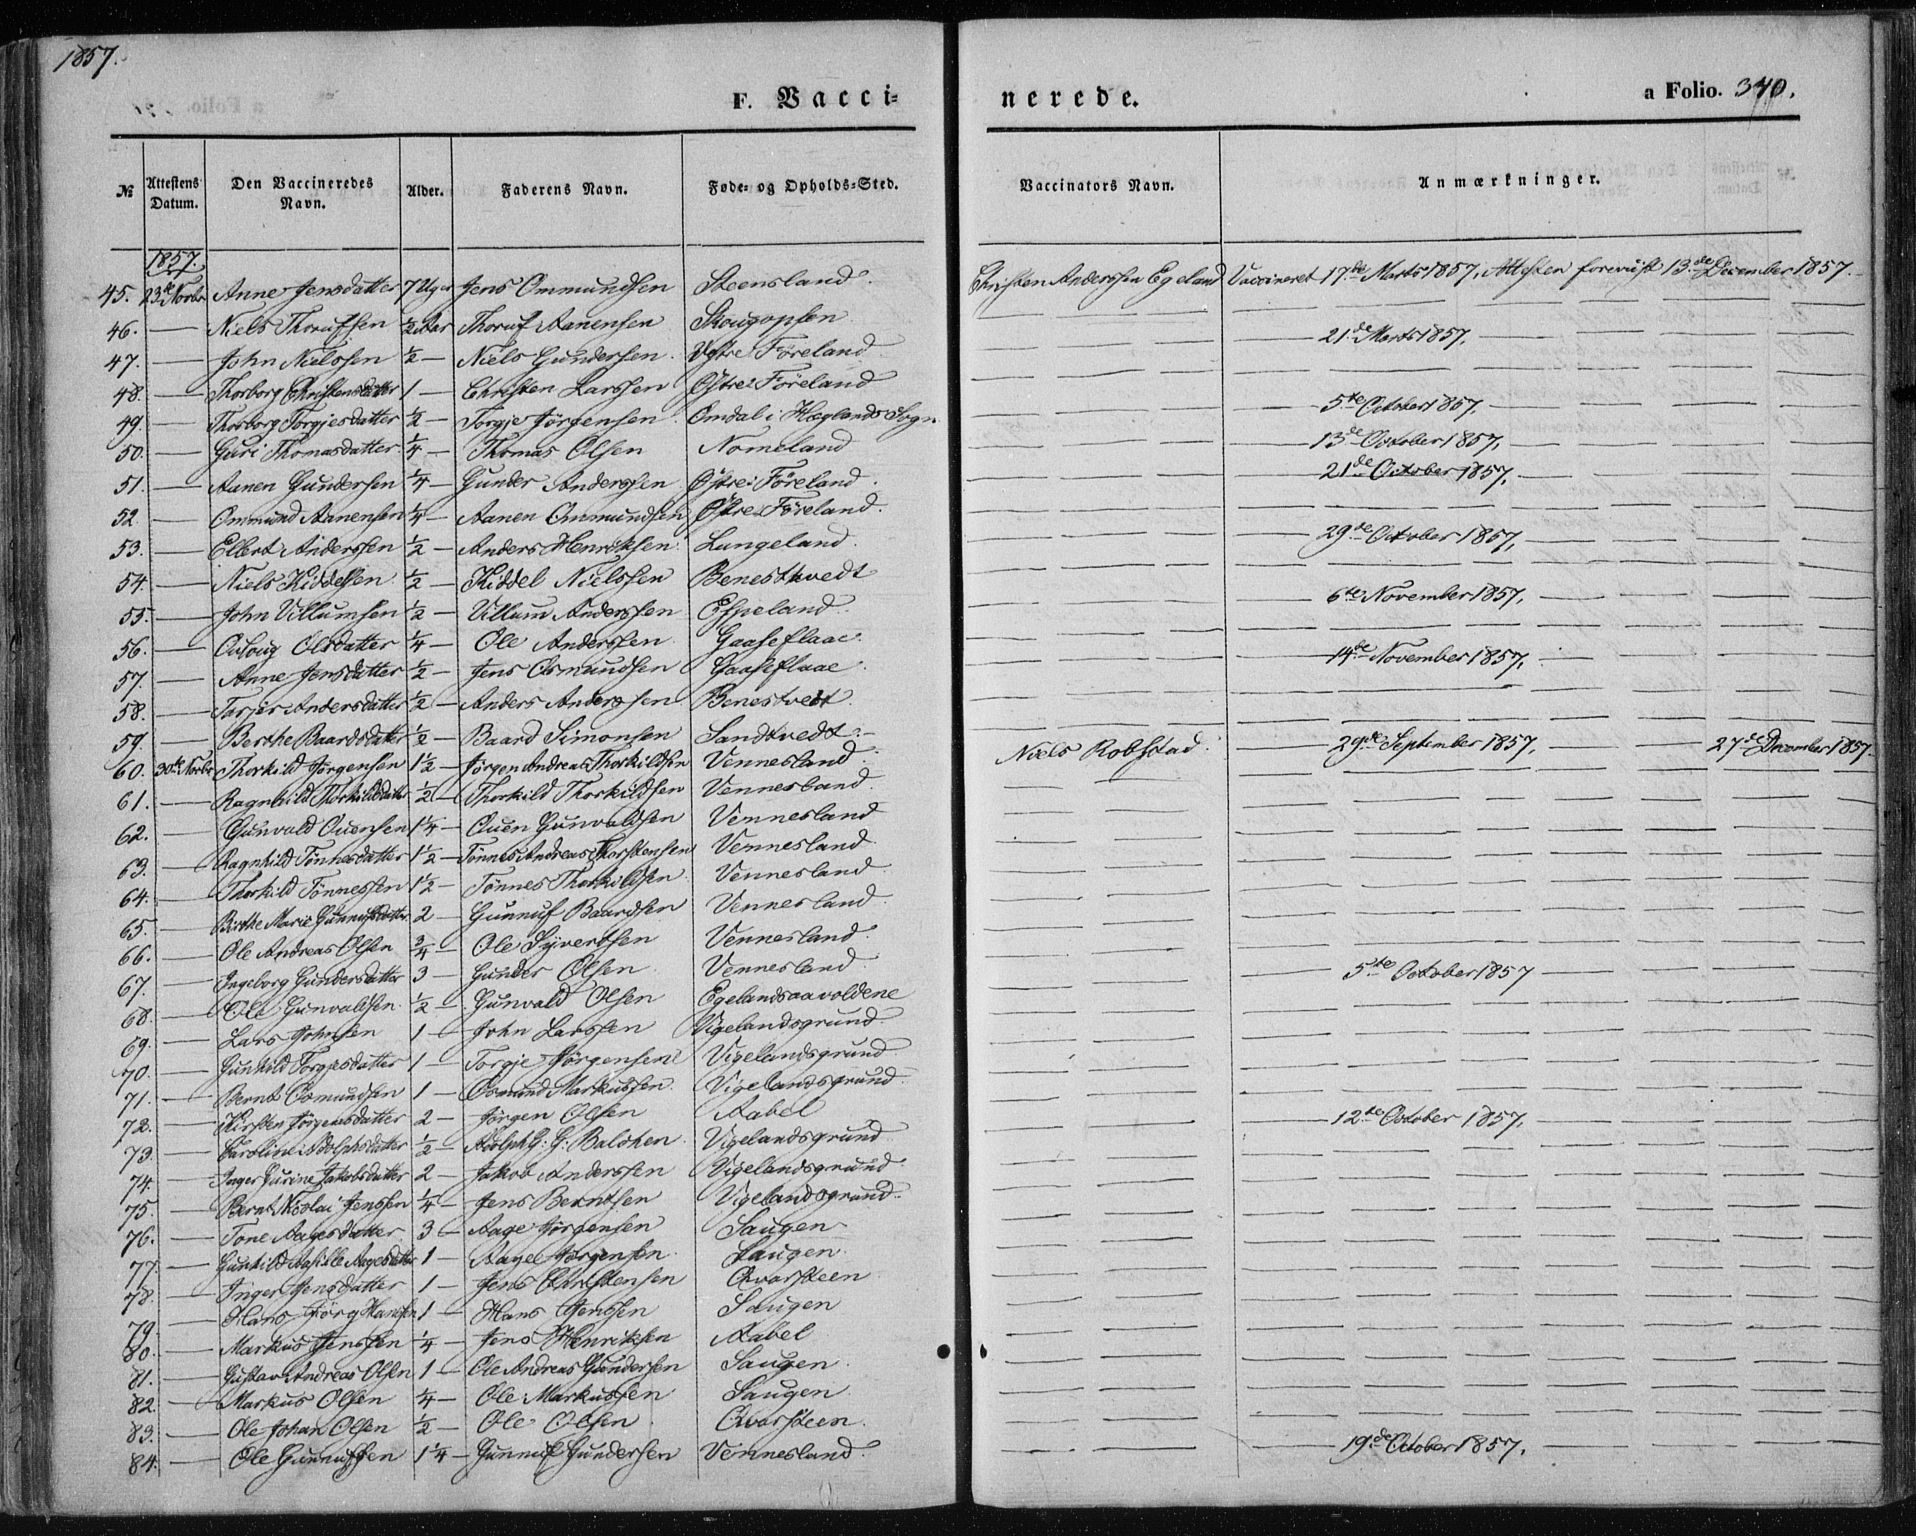 1857.
F. Vacci-
nerede.
a Folio. 370.
№
Attestens Datum.
Den Vaccineredes Navn.
Alder.
Faderens Navn.
Føde- og Opholds-Sted.
Vaccinators Navn.
Anmærkninger.
1857.
45. 23de Novbr Anne Jensdatter 7 Uger Jens Ommundsen Steensland. Christen Anderssen Egeland Vaccineret 17de Marts 1857, Attesten foreviist 13de December 1857.
46. — Niels Thorufsen ½ Aar Thoruf Aanensen Skougopsen — — —
47. — John Nielssen ½ — Niels Gundersen. Vestre Föreland — 21de Marts 1857, —
48. — Thorborg Christensdatter 1 — Christen Larssen Östre Föreland — — —
49. — Thorborg Torgjesdatter ½ — Torgje Jörgensen. Omdal i Hæglands Sogn. — 5te October 1857, —
50. — Guri Thomasdatter ¼ — Thomas Olsen Nomeland — 13de October 1857,
51. — Aanen Gundersen ¼ — Gunder Anderssen Östre Föreland. — 21de October 1857,
52. — Ommund Aanensen ¼ — Aanen Ommundsen Östre Föreland. — — —
53. — Elbert Anderssen ½ — Anders Henriksen Lungeland. — 29de October 1857,
54. — Niels Kiddelsen ½ — Kiddel Nielssen Benesthvedt — — —
55. — John Villumsen ½ — Villum Anderssen Espeland. — 6te November 1857,
56. — Oaloug Olsdatter ¼ — Ole Anderssen Gaaseflaae. — — —
57. — Anne Jensdatter ½ — Jens Osmundsen Gaaseflaae. — 14de November 1857,
58. — Tarjer Andersdatter ½ — Anders Anderssen Benestvedt. — — —
59. — Berthe Baardsdatter ½ — Baard Simonsen Sandtvedt. — — — —
60. 30te Novbr Thorkild Jörgensen 1½ — Jörgen Andreas Thorkildsen Vennesland. Niels Robstad. — 29de September 1857, — 27de December 1857.
61. — Ragnhild Thorkildsdatter ½ — Thorkild Thorkildsen Vennesland. — — —
62. — Gunvald Ouensen 1¼ — Ouen Gunvaldsen Vennesland — — —
63. — Ragnhild Tönnesdatter 1½ — Tönnes Andreas Thorstensen Vennesland. — — —
64. — Thorkild Tönnessen 1½ — Tönnes Thorkildsen. Vennesland. — — —
65. — Birthe Marie Gunnufsdatter 2 — Gunnuf Baardsen Vennesland. — — —
66. — Ole Andreas Olsen ¾ — Ole Syvertsen Vennesland. — — —
67. — Ingeborg Gundersdatter 3 — Gunder Olsen Vennesland. — 5te October 1857 —
68. — Ole Gunvaldsen ½ — Gunvald Olsen Egelandsaavoldene — — —
69. — Lars Johnsen 1 — John Larssen Vigelandsgrund. — — —
70. — Gunhild Torgjesdatter 1 — Torgje Jörgensen Vigelandsgrund. — — —
71. — Bernt Osmundsen 1 — Osmund Markussen. Vigelandsgrund. — — —
72. — Kirsten Jörgensdatter 2 — Jörgen Olsen Aabel — 12te October 1857,
73. — Caroline Adolphsdatter ½ — Adolph G: G: Balchen. Vigelandsgrund. — — —
74. — Inger Gurine Jakobsdatter 2 — Jakob Anderssen Vigelandsgrund. — — —
75. — Bernt Nicolai Jenssen ¼ — Jens Berntsen Vigelandsgrund. — — —
76. — Tone Aagesdatter 3 — Aage Jörgensen Saugen — — —
77. — Gunhild Aasille Aagesdatter 1 — Aage Jörgensen. Saugen. — — —
78. — Inger Jensdatter 1 — Jens Christensen Qvarsteen — — —
79. — Hans Jörg Hansen 1 — Hans Jenssen Saugen — — —
80. — Markus Jenssen ¼ — Jens Henriksen Aabel — — —
81. — Gustav Andreas Olsen 1 — Ole Andreas Gundersen Saugen. — — —
82. — Markus Olsen ¼ — Ole Markussen Saugen — — —
83. — Ole Johan Olsen ½ — Ole Olsen. Qvarsteen. — — —
84. — Ole Gunnufsen 1¼ — Gunnuf Gundersen Vennesland. — 19de October 1857,